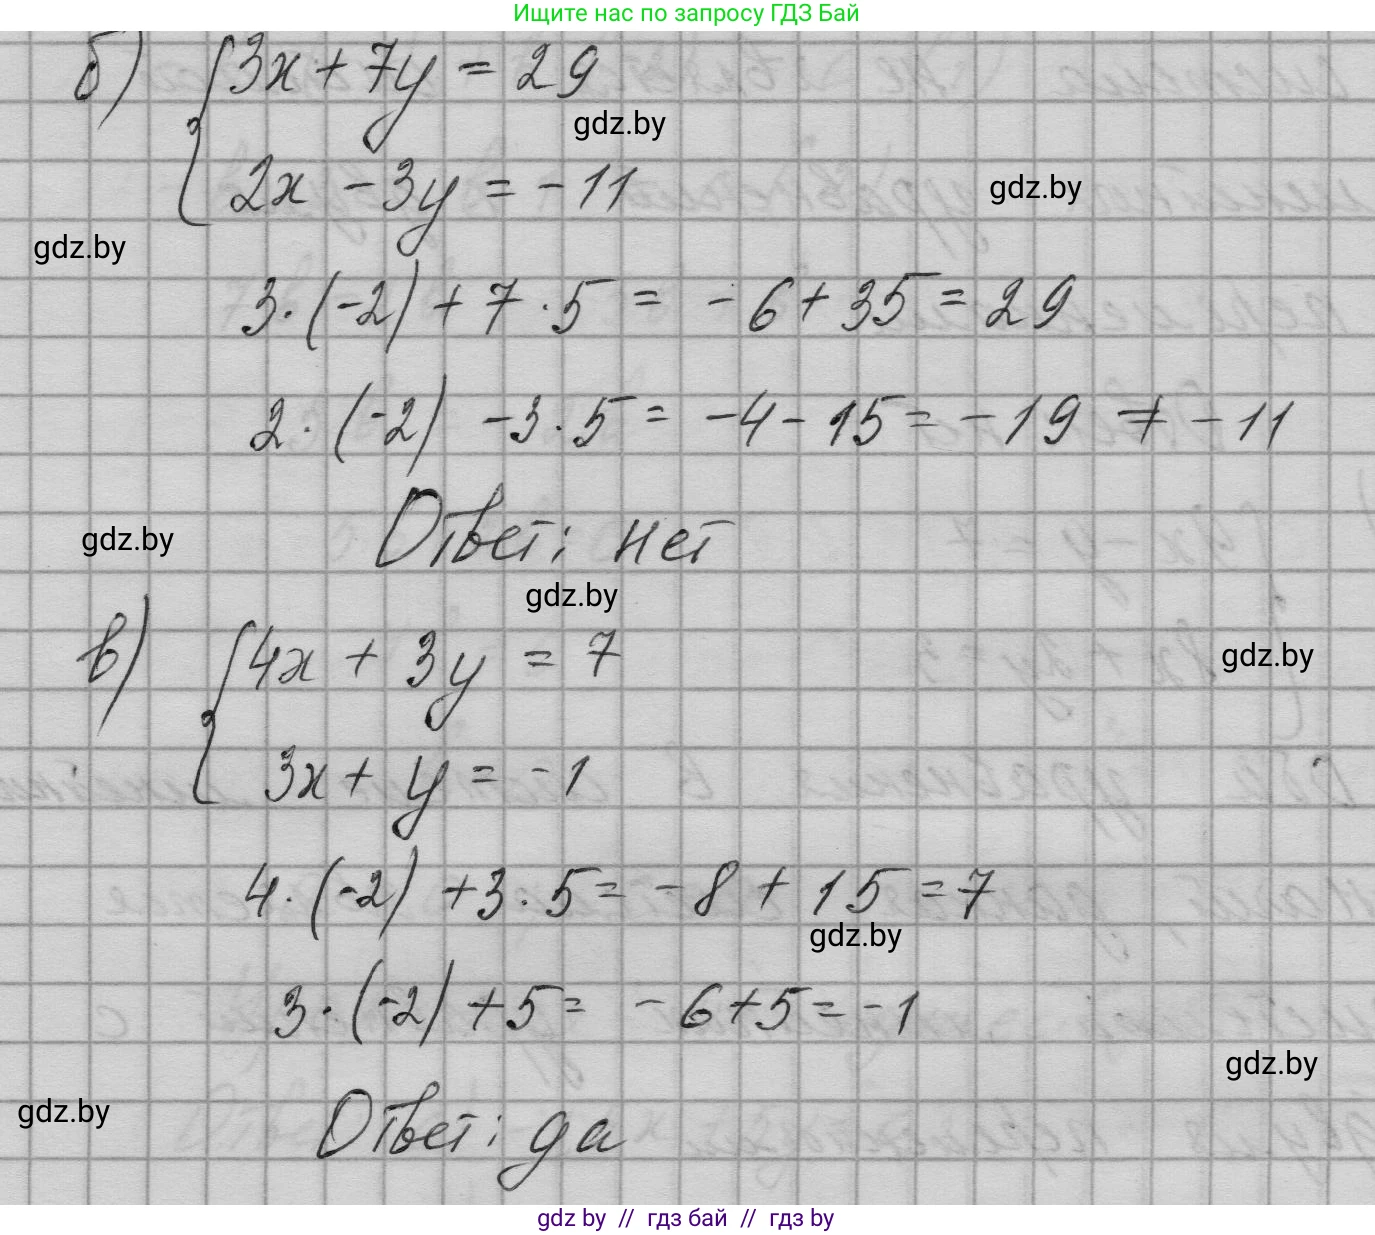 Ищите нас по запросу ГДЗ Бай
б) { 3x + 7y = 29
gdz.by
2x - 3y = -11
gdz.by
gdz.by
3·(-2) + 7·5 = -6 + 35 = 29
2·(-2) - 3·5 = -4 - 15 = -19 ≠ -11
Ответ: нет
gdz.by
gdz.by
в) { 4x + 3y = 7
gdz.by
3x + y = -1
4·(-2) + 3·5 = -8 + 15 = 7
gdz.by
3·(-2) + 5 = -6 + 5 = -1
gdz.by
gdz.by
Ответ: да
gdz by // гдз бай // гдз by